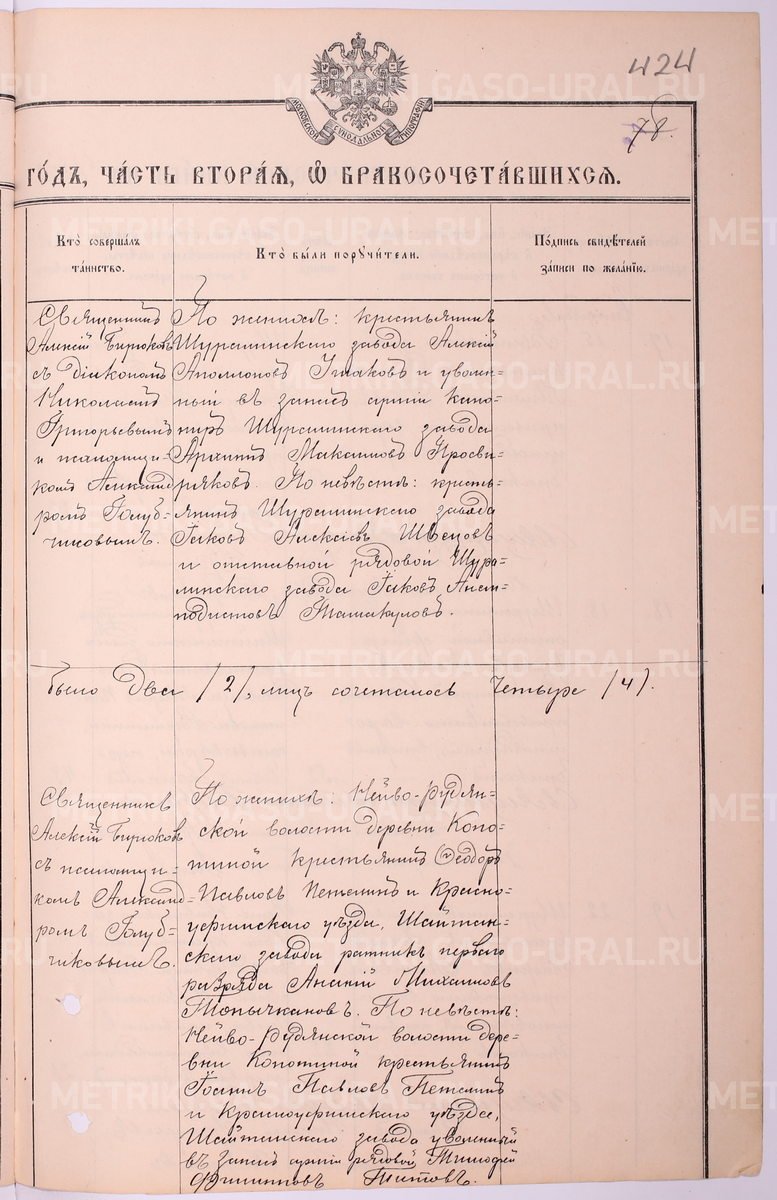 424
78.
МОСКОВСКОЙ СѴНОДАЛЬНОЙ ТИПОГРАФІИ
ГО́ДЪ, ЧА́СТЬ ВТОРА́Я, Ѡ҆ БРАКОСОЧЕТА́ВШИХСЯ.
Кто̀ соверша́лъ
та́инство.
Кто̀ бы́ли порꙋчи́тели.
По́дпись свидѣ́телей
за́писи по жела́нїю.
Священникъ
Алексій Бирюковъ
съ діакономъ
Николаемъ
Григорьевымъ
и псаломщи-
комъ Александ
ромъ Голуб-
чиковымъ.
По женихѣ: крестьянинъ
Шуралинскаго завода Алексій
и уволен-
ный въ запасъ арміи кано-
ниръ Шуралинскаго завода
Архипъ Максимовъ Просви-
ряковъ. По невѣстѣ: кресть-
янинъ Шуралинскаго завода
Іаковъ Алексѣевъ Швецовъ
и отставной рядовой Шура-
линскаго завода Іаковъ Анем-
подистовъ Ташкуловъ.
было два /2/, лицъ сочеталось четыре /4/.
Священникъ
Алексій Бирюковъ
съ псаломщи-
комъ Александ-
ромъ Голуб-
чиковымъ.
По женихѣ: Нейво-Рудян-
ской волости деревни Копо-
тиной крестьянинъ Ѳеодоръ
Павловъ Петелинъ и Красно-
уфимскаго уѣзда, Шайтан-
скаго завода ратникъ перваго
разряда Ананій Михаиловъ
Топычкановъ. По невѣстѣ:
Нейво-Рудянской волости дере-
вни Копотиной крестьянинъ
Іоаннъ Павловъ Петелинъ
и Красноуфимскаго уѣзда,
Шайтанскаго завода уволенный
въ запасъ арміи рядовой Тимофей
Филипповъ Титовъ.
METRIKI.GASO-URAL.RU